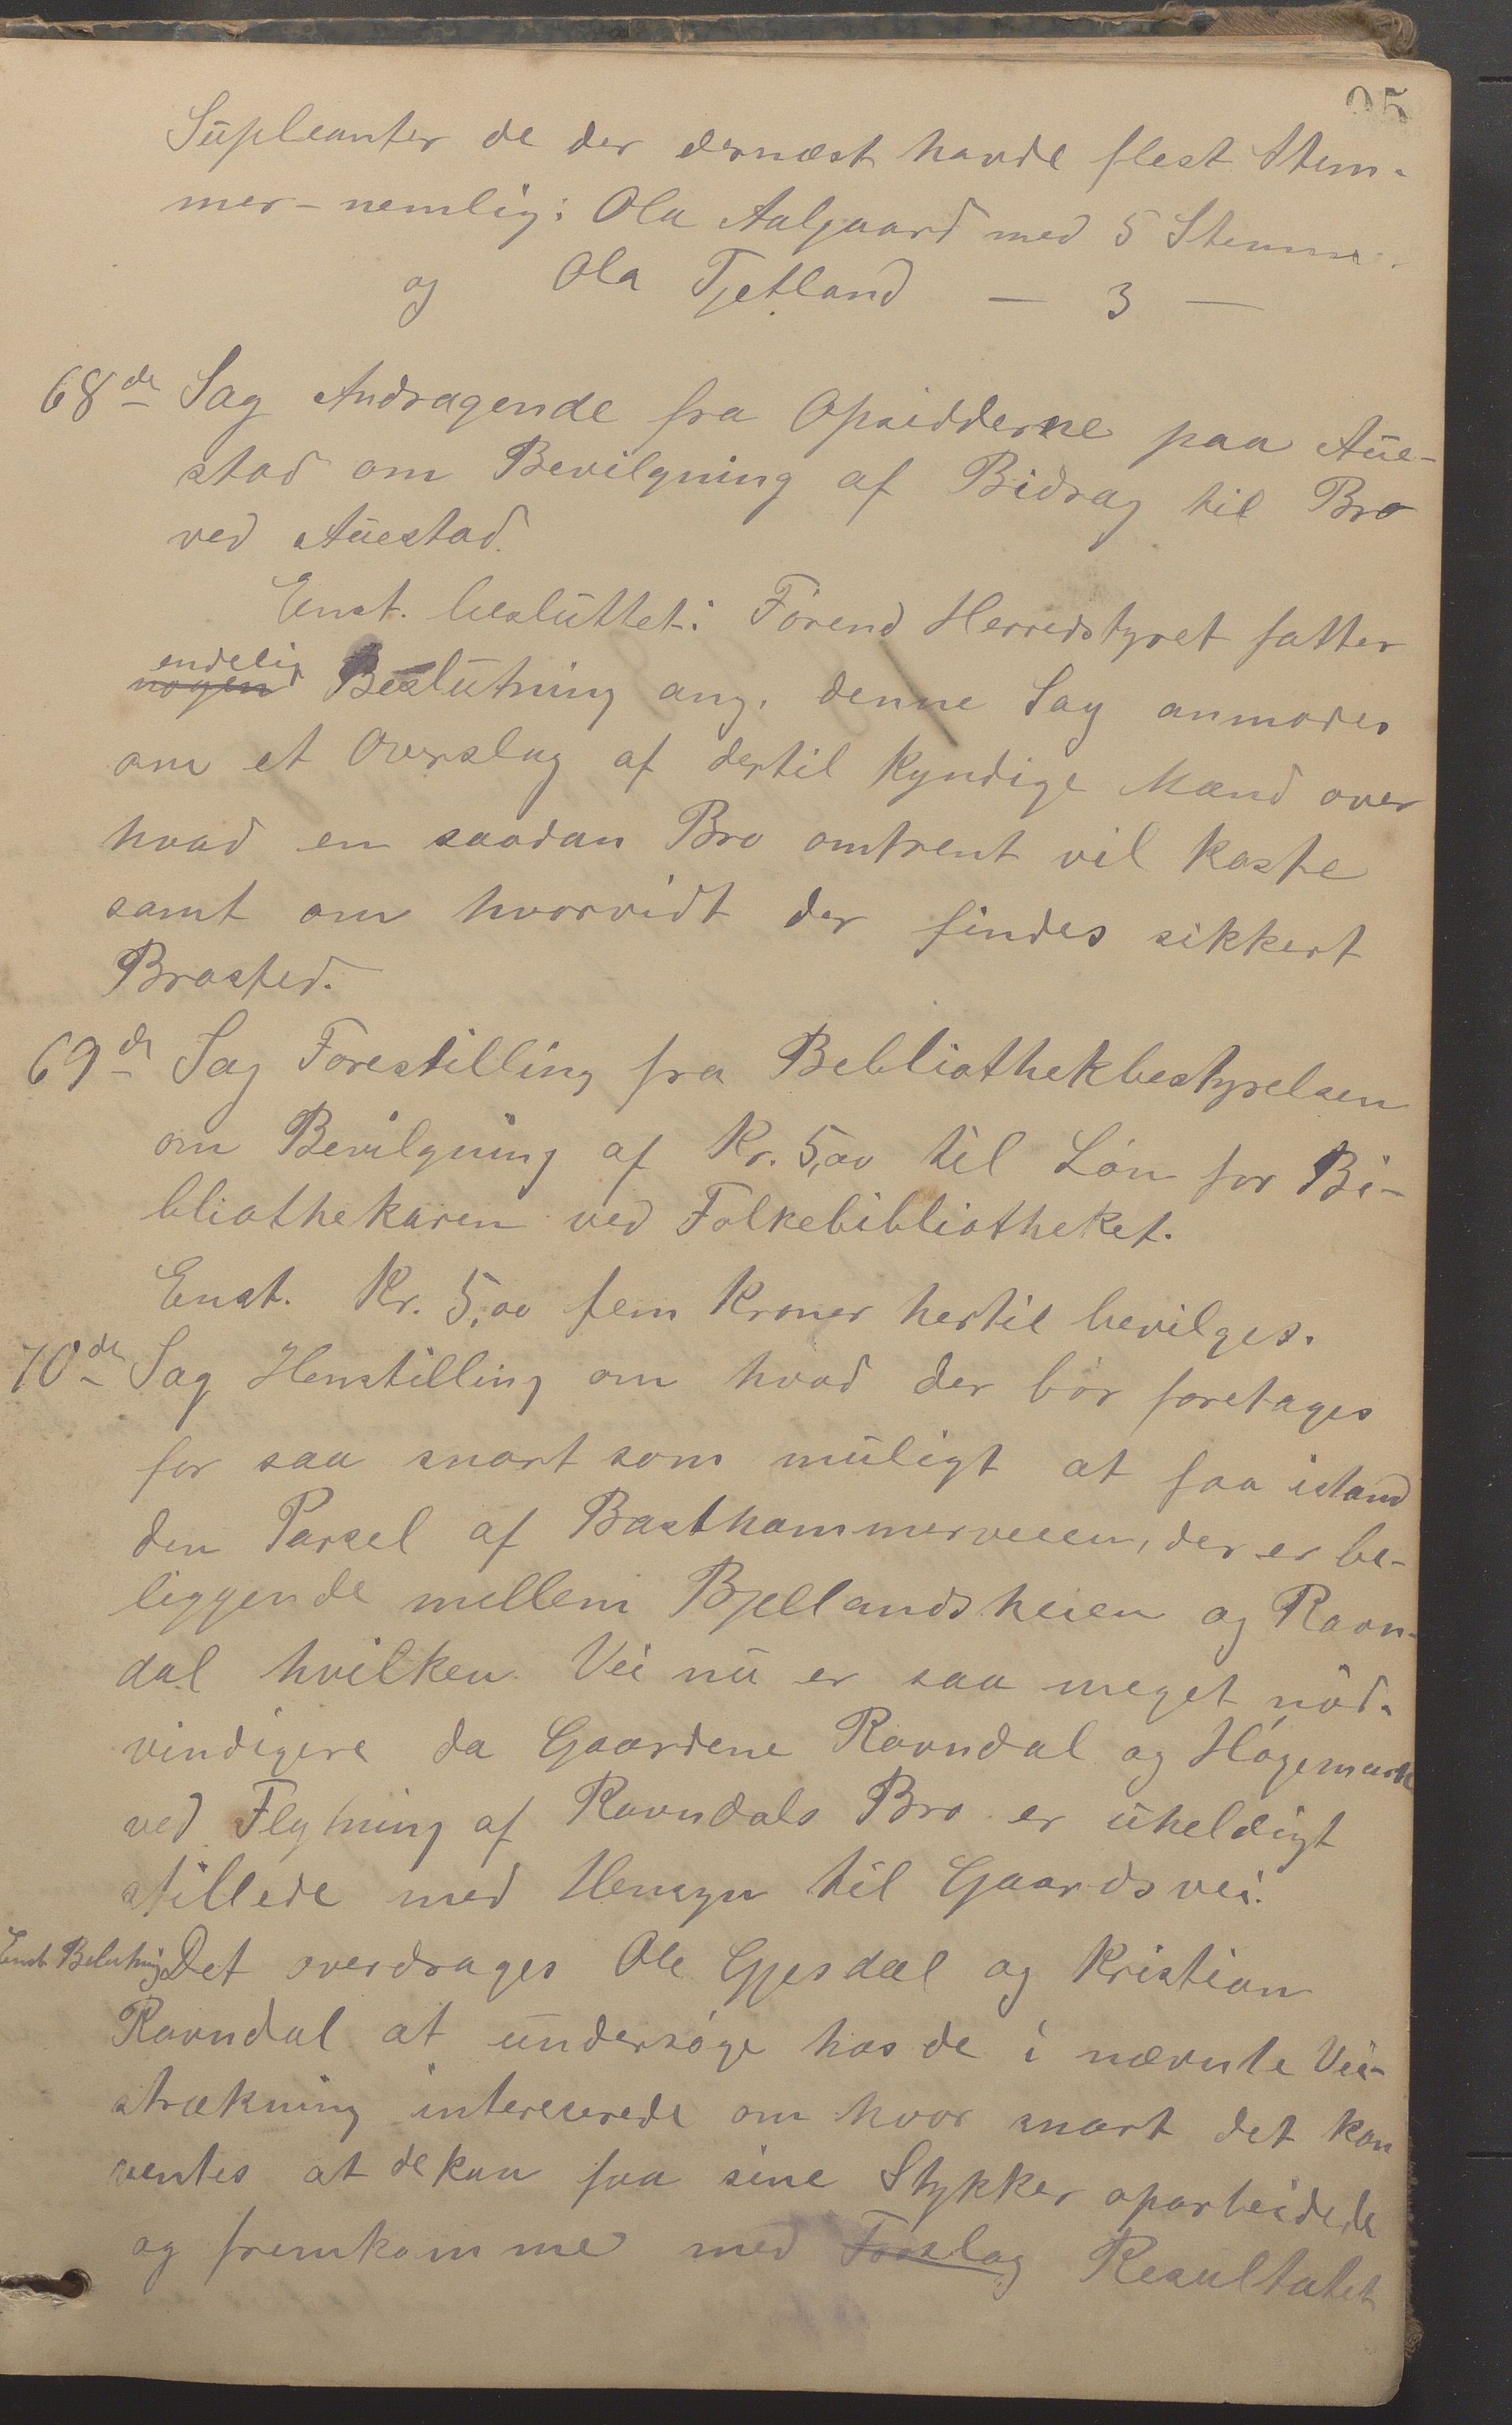 95
Supleanter de der dernæst havde flest Stem-
mer - nemlig: Ola Aalgaard med 5 Stemmer
og Ola Tjetland — 3 —
68de Sag Andragende fra Opsidderne paa Aue-
stad om Bevilgning af Bidrag til Bro
ved Auestad.
Enst. besluttet: Förend Herredstyret fatter
endelig
nogen Beslutning ang. denne Sag anmodes
om et Overslag af dertil Kyndige Mænd over
hvad en saadan Bro omtrent vil koste
samt om hvorvidt der findes sikkert
Brosted.
69de Sag Forestilling fra Bebliothekbestyrelsen
om Bevilgning af Kr. 5,00 til Lön for Bi-
bliothekaren ved Folkebibliotheket.
Enst. Kr. 5,00 fem Kroner hertil bevilges.
70de Sag Henstilling om hvad der bör foretages
for saa snart som muligt at faa istand
den Parsel af Basthammerveien, der er be-
liggende mellem Bjellandsheien og Ravn-
dal hvilken Vei nu er saa meget nöd-
vindigere da Gaardene Ravndal og Högemark
ved Flytning af Ravndals Bro er uheldigt
stillede med Hensyn til Gaardsvei.
Enst. Belutning Det overdrages Ole Gjesdal og Kristian
Ravndal at undersöge hos de i nævnte Vei-
strækning intereserede om hvor snart det kan
ventes at de kan faa sine Stykker oparbeidede
og fremkomme med Forslag Resultatet